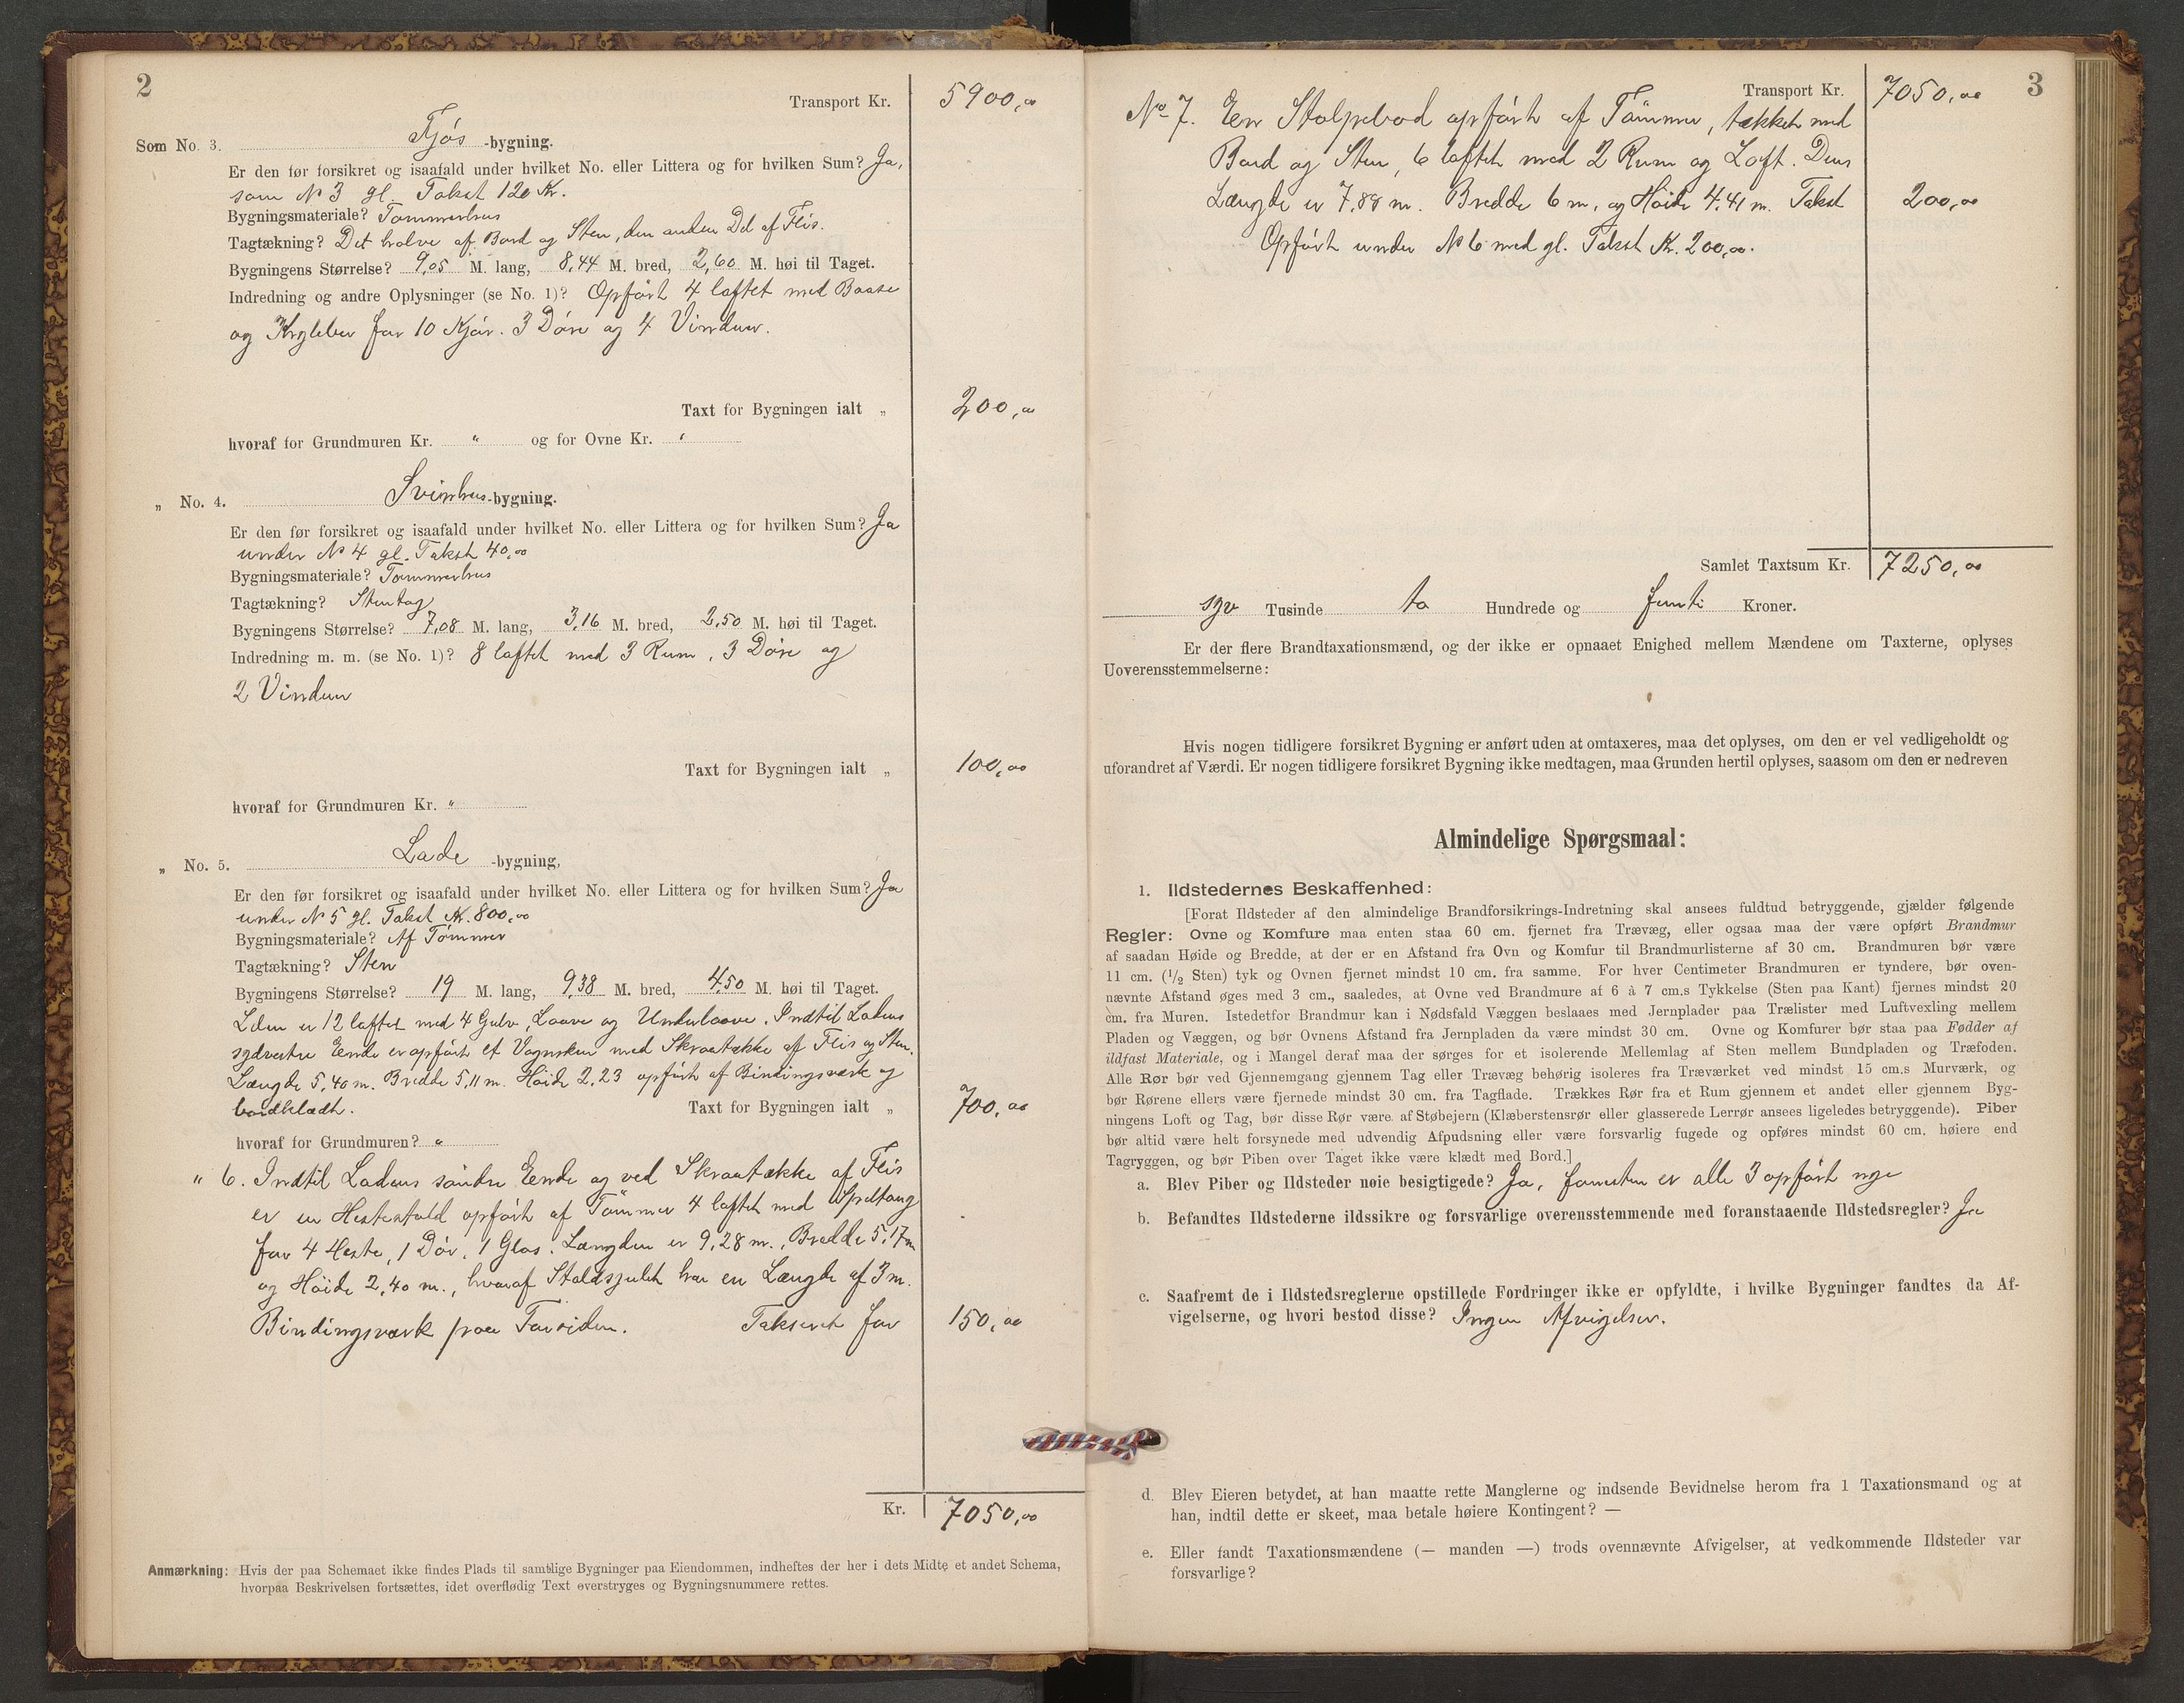 2
Transport Kr. 5900,00
Som No. 3. Fjøs -bygning.
Er den før forsikret og isaafald under hvilket No. eller Littera og for hvilken Sum? Ja,
som No 3 gl. Takst 120 Kr.
Bygningsmateriale? Tømmerhus
Tagtækning? Det halve af Bord og Sten, den anden Del af Flis.
Bygningens Størrelse? 9,05 M. lang, 8,44 M. bred, 2,60 M. høi til Taget.
Indredning og andre Oplysninger (se No. 1)? Opført 4 laftet med Baase
og for 10 Kjør. 3 Døre og 4 Vinduer.
Taxt for Bygningen ialt „ 200,00
hvoraf for Grundmuren Kr. " og for Ovne Kr. "
„ No. 4. Svinhus-bygning.
Er den før forsikret og isaafald under hvilket No. eller Littera og for hvilken Sum? Ja
under No 4 gl. Takst 40,00
Bygningsmateriale? Tømmerhus
Tagtækning? Stentag
Bygningens Størrelse? 7,08 M. lang, 3,16 M. bred, 2,50 M. høi til Taget.
Indredning m. m. (se No. 1)? 8 laftet med 3 Rum, 3 Døre og
2 Vinduer
Taxt for Bygningen ialt „ 100,00
hvoraf for Grundmuren Kr. "
„ No. 5. Lade -bygning,
Er den før forsikret og isaafald under hvilket No. eller Littera og for hvilken Sum? Ja
under No 5 gl. Takst Kr. 800,00
Bygningsmateriale? Af Tømmer
Tagtækning? Sten
Bygningens Størrelse? 19 M. lang, 9,38 M. bred, 4,50 M. høi til Taget.
er 12 laftet med 4 Gulv, Laave og Underlaave. Indtil Ladens
sydvestre Ende er opført et Vognskur med Skraatække af Flis og Sten.
Længde 5,40 m. Bredde 5,11 m. Høide 2,23 opført af Bindingsværk og
bordklædt. Taxt for Bygningen ialt „ 700,00
hvoraf for Grundmuren? "
" 6. Indtil Ladens søndre Ende og ved Skraatække af Flis
er en Hestestald opført af Tømmer 4 laftet med Spiltoug
for 4 Heste, 1 Dør, 1 Glas. Længden er 9,28 m., Bredde 5,17 m
og Høide 2,40 m., hvoraf har en Længde af 3 m.
Bindingsværk paa Forsiden. Takseret for 150,00
Kr. 7050,00
Anmærkning: Hvis der paa Schemaet ikke findes Plads til samtlige Bygninger paa Eiendommen, indheftes der her i dets Midte et andet Schema,
hvorpaa Beskrivelsen fortsættes, idet overflødig Text overstryges og Bygningsnummere rettes.
Transport Kr. 7050,00 3
No 7. En Stolpebod opført af Tømmer, tækket med
Bord og Sten, 6 laftet med 2 Rum og Loft. Dens
Længde er 7,88 m. Bredde 6 m, og Høide 4,41 m. Takst 200,00
Opført under No 6 med gl. Takst Kr. 200,00.
Samlet Taxtsum Kr. 7250,00
syv Tusinde to Hundrede og femti Kroner.
Er der flere Brandtaxationsmænd, og der ikke er opnaaet Enighed mellem Mændene om Taxterne, oplyses
Uoverensstemmelserne:
Hvis nogen tidligere forsikret Bygning er anført uden at omtaxeres, maa det oplyses, om den er vel vedligeholdt og
uforandret af Værdi. Er nogen tidligere forsikret Bygning ikke medtagen, maa Grunden hertil oplyses, saasom om den er nedreven
Almindelige Spørgsmaal:
1. Ildstedernes Beskaffenhed:
[Forat Ildsteder af den almindelige Brandforsikrings-Indretning skal ansees fuldtud betryggende, gjælder følgende
Regler: Ovne og Komfure maa enten staa 60 cm. fjernet fra Trævæg, eller ogsaa maa der være opført Brandmur
af saadan Høide og Bredde, at der er en Afstand fra Ovn og Komfur til Brandmurlisterne af 30 cm. Brandmuren bør være
11 cm. (1/2 Sten) tyk og Ovnen fjernet mindst 10 cm. fra samme. For hver Centimeter Brandmuren er tyndere, bør oven-
nævnte Afstand øges med 3 cm., saaledes, at Ovne ved Brandmure af 6 à 7 cm.s Tykkelse (Sten paa Kant) fjernes mindst 20
cm. fra Muren. Istedetfor Brandmur kan i Nødsfald Væggen beslaaes med Jernplader paa Trælister med Luftvexling mellem
Pladen og Væggen, og bør Ovnens Afstand fra Jernpladen da være mindst 30 cm. Ovne og Komfurer bør staa paa Fødder af
ildfast Materiale, og i Mangel deraf maa der sørges for et isolerende Mellemlag af Sten mellem Bundpladen og Træfoden.
Alle Rør bør ved Gjennemgang gjennem Tag eller Trævæg behørig isoleres fra Træværket ved mindst 15 cm.s Murværk, og
bør Rørene ellers være fjernede mindst 30 cm. fra Tagflade. Trækkes Rør fra et Rum gjennem et andet eller gjennem Byg-
ningens Loft og Tag, bør disse Rør være af Støbejern (Klæberstensrør eller glasserede Lerrør ansees ligeledes betryggende). Piber
bør altid være helt forsynede med udvendig Afpudsning eller være forsvarlig fugede og opføres mindst 60 cm. høiere end
Tagryggen, og bør Piben over Taget ikke være klædt med Bord.]
a. Blev Piber og Ildsteder nøie besigtigede? Ja, er alle 3 opført nye
b. Befandtes Ildstederne ildssikre og forsvarlige overensstemmende med foranstaaende Ildstedsregler? Ja
c. Saafremt de i Ildstedsreglerne opstillede Fordringer ikke er opfyldte, i hvilke Bygninger fandtes da Af-
vigelserne, og hvori bestod disse? Ingen Afvigelser.
d. Blev Eieren betydet, at han maatte rette Manglerne og indsende Bevidnelse herom fra 1 Taxationsmand og at
han, indtil dette er skeet, maa betale høiere Kontingent? —
e. Eller fandt Taxationsmændene (— manden —) trods ovennævnte Afvigelser, at vedkommende Ildsteder var
forsvarlige?